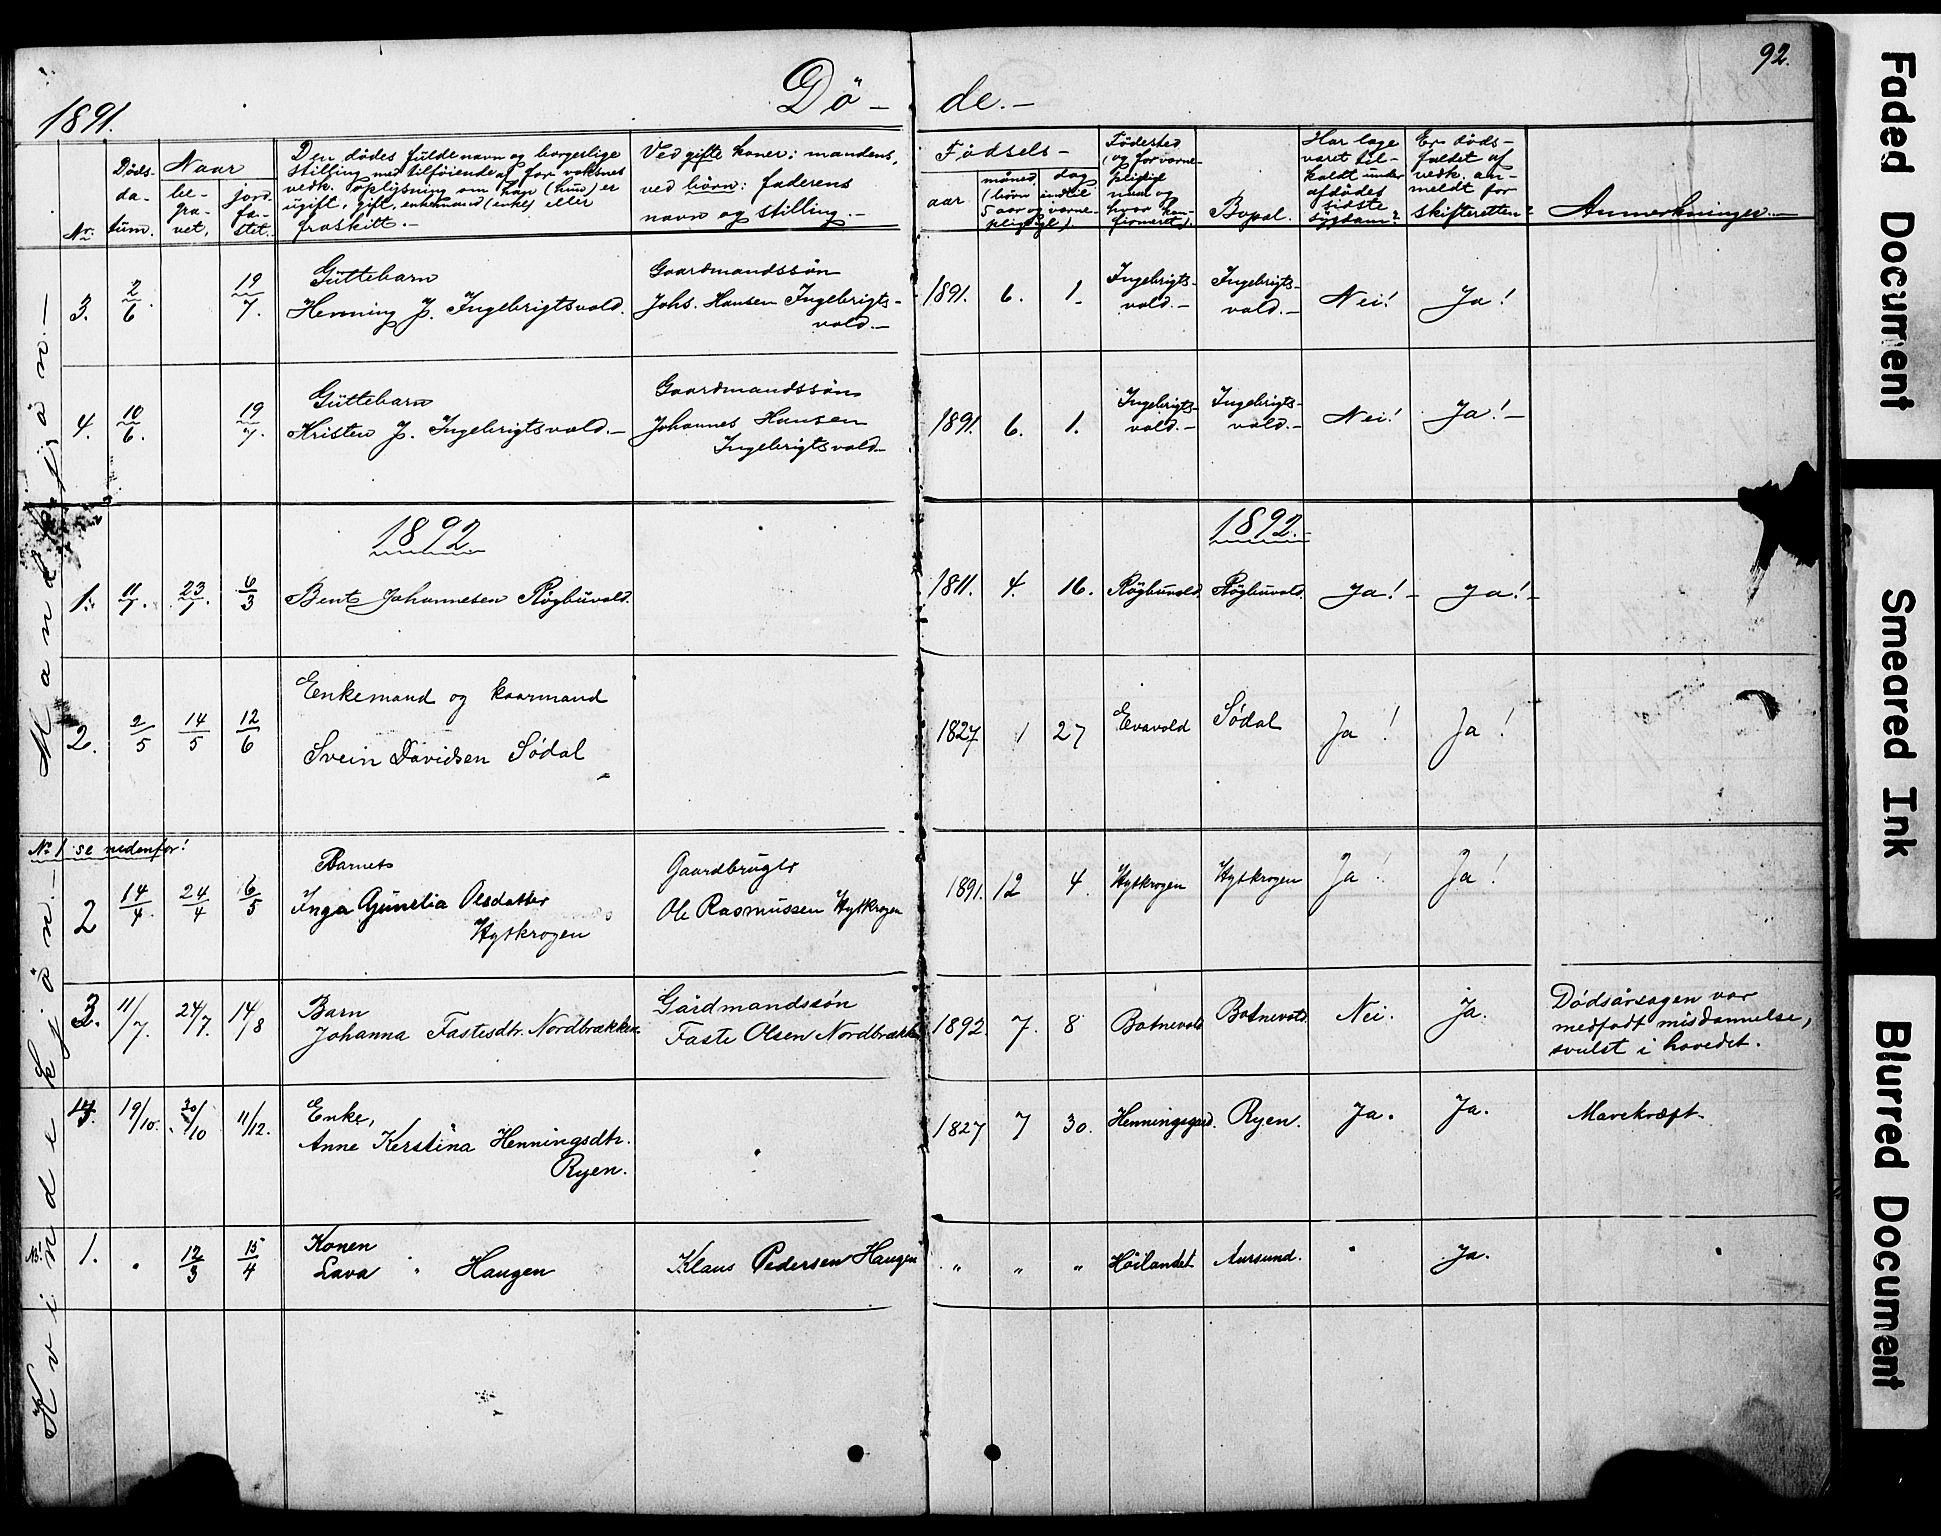 92.
1891.
Dö- de.-
Nr.
Døds-
da-
tum.
Naar
be-
gra-
vet,
jord-
fa-
stet.
Den dødes fulde navn og borgerlige
stilling med tilføiende af for voksnes
vedk. oplysning om han (hun) er
ugift, gift, enkemand (enke) eller
fraskilt.-
Ved gifte koner: mandens,
ved börn: faderens
navn og stilling.-
Fødsels-
aar
måned, dag
(börn indtil
5 aar og værne-
pligtige).
Födested
(og for værne-
pligtige
Bopæl.
Har læge
været til-
kaldt under
afdødes
sidste
sygdom?
Er døds-
faldet af
vedk. an-
meldt for
skifteretten?
Anmerkninger.-
Mandkjön.-
3. 2/6. 19/7. Güttebarn
Henning J. Ingebrigtsvold.
Gaardmandssøn
Johs. Hansen Ingebrigts-
vold.-
1891. 6. 1. Ingebrigts-
vold.-
Ingebrigts-
vold.-
Nei! Ja!
4. 10/6. 19/7. Güttebarn
Kristen J. Ingebrigtsvold.-
Gaardmandssøn
Johannes Hansen
Ingebrigtsvold-
1891. 6. 1. Ingebrigts-
vold.-
Ingebrigts-
vold.-
Nei! Ja!-
1892 1892.-
1. 11/1. 23/1. 6/3 Bent Johannesen Røgbüvold. 1811. 4. 16. Røgbuvold. Røgbüvold. Ja!- Ja!-
2. 2/5 14/5 12/6 Enkemand og kaarmand
Svein Davidsen Södal
1827 1 27 Evavold Södal Ja! Ja!
Kvindekjön.-
No 1 se nedenfor!
2 14/4. 24/4 6/5 Barnet
Inga Gunelia Olsdatter
Hytkrogen
Gaardbruger
Ole Rasmussen Hytkrogen
1891. 12 4 Hytkrogen Hytkrogen Ja! Ja!
3. 11/7. 24/7. 14/8 Barn
Johanna Fastesdtr. Nordbrækken.
Gårdmandssön
Faste Olsen Nordbrækken
1892. 7. 8 Botnevold Botnevold. Nei. Ja. Dödsårsagen var
medfödt misdannelse,
svulst i hovedet.
19/10. 30/10 11/12. Enke,
Anne Kerstina Henningsdtr.
Ryen.
1827 7 30. Henningsgård. Ryen. Ja. Ja. Mavekræft.
No! 1. 12/3 15/4 Konen
Lava " Haugen
Klaus Pedersen Haugen
" " " Höilandet Aursund. " Ja.
Faded Document
Smeared Ink
Blurred Document